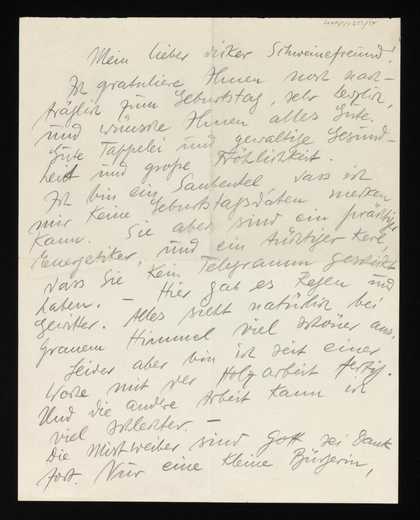 Mein lieber dicker Schweinefreund!
Ich gratuliere Ihnen noch nach-
träglich zum Geburtstag, sehr herzlich,
und wünsche Ihnen alles Gute.
Gute Tappelei und gewaltige Gesund-
heit und große Fröhlichkeit.
Ich bin ein Saubeutel dass ich
mir keine Geburtstagsdaten merken
kann. Sie aber sind ein prächtiger
Energetiker, und ein tüchtiger Kerl,
dass Sie kein Telegramm geschickt
haben. — Hier gab es Regen und
Gewitter. Alles sieht natürlich bei
grauem Himmel viel schöner aus.
Leider aber bin ich seit einer
Woche mit der Holzarbeit fertig.
Und die andere Arbeit kann ich
viel schlechter. —
Die Mistweiber sind Gott sei Dank
fort. Nur eine kleine Bürgerin,